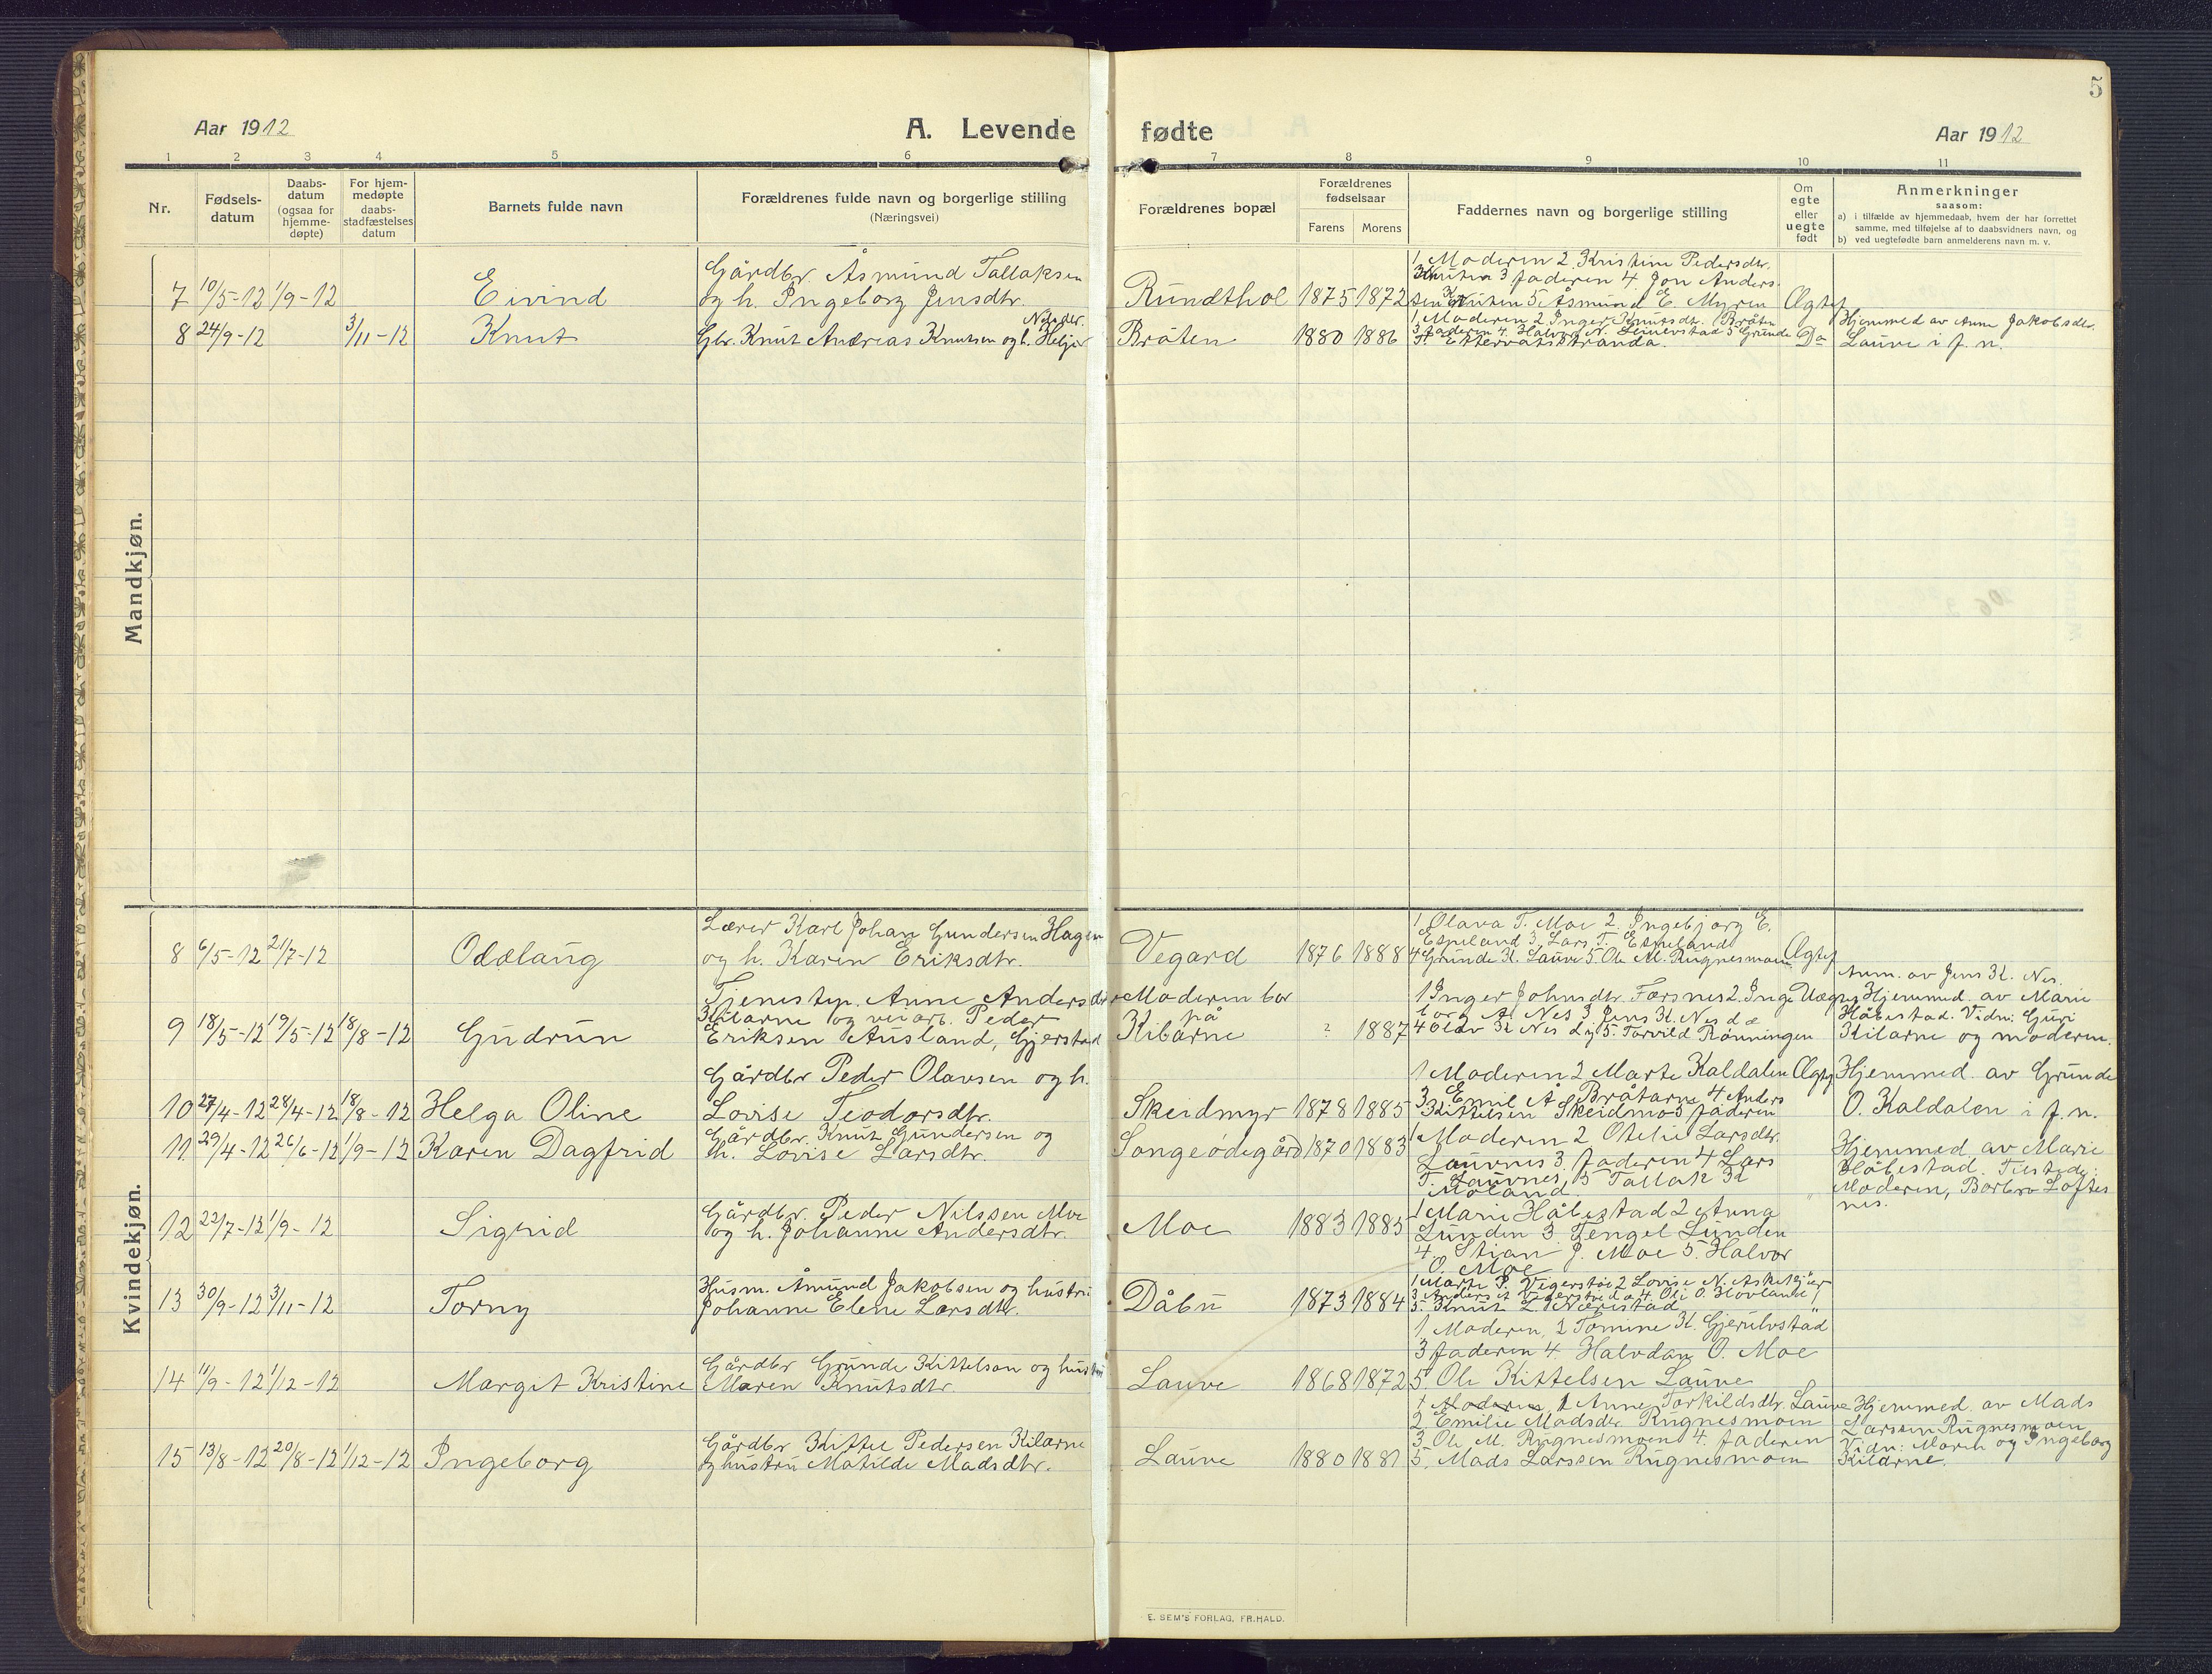 5
Aar 1912
A. Levende
fødte
Aar 1912
1 2 3 4 5 6 7 8 9 10 11
Nr.
Fødsels-
datum
Daabs-
datum
(ogsaa for
hjemme-
døpte)
For hjem-
medøpte
daabs-
stadfæstelses
datum
Barnets fulde navn
Forældrenes fulde navn og borgerlige stilling
(Næringsvei)
Forældrenes bopæl
Forældrenes
fødselsaar
Farens Morens
Faddernes navn og borgerlige stilling
Om
egte
eller
uegte
født
Anmerkninger
saasom:
a) i tilfælde av hjemmedaab, hvem der har forrettet
samme, med tilføjelse af to daabsvidners navn, og
b) ved uegtefødte barn anmelderens navn m. v.
Mandkjøn.
7 10/5-12 1/9-12
Eivind
Gårdbr. Åsmund Tallaksen
og h. Ingeborg Jensdtr.
Rundthol 1875 1872
1 Moderen 2 Kristine Pedersdtr.
3 faderen 4 Jon Anders-
sen 5 Åsmund E. Myren
Ægte
8 24/9-12 3/11-12
Knut
Gbr. Knut Andreas Knutsen og h. Helje
Bråten 1880 1886
1 Moderen 2 Inger Knutsdtr. Bråten
3 faderen 4 Halvor N. 5 Grunde
Do
Hjemmed av Anne Jakobsdtr.
Lauve i f. n.
Kvindekjøn.
8 6/5-12 21/7-12
Oddlaug
Lærer Karl Johan Gundersen Hagen
og h. Karen Eriksdtr.
Vegard 1876 1888
1 Olava T. Moe 2 Ingebjorg E.
Espeland 3 Lars T. Espeland
4 Grunde K. Lauve 5 Ole M. Rugnesmoen
Ægte
9 18/5-12 19/5-12 18/8-12
Gudrun
Tjenestep. Anne Andersdtr
Kilarne og veiarb. Peder
Eriksen Ausland, Gjerstad
Moderen bor
på
Kilarne ? 1887
1 Inger Johnsdtr. Forsnes 2 Inge
borg A. Nes 3 Jens K. Nes
4 Olav K. Nes 5 Torvild Rønningen
Uægte
Anm. av Jens K. Nes.
Hjemmed. av Marie
Håbestad. Vidn: Guri
Kilarne og moderen.
10 27/4-12 28/4-12 18/8-12
Helga Oline
Gårdbr Peder Olavsen og h.
Lovise Teodorsdtr.
Skeidmyr 1878 1885
1 Moderen 2 Marte Kaldalen
3 Emil A. Bråtarne 4 Anders
Kittelsen Skeidmo 5 faderen
Ægte
Hjemmed. av Grunde
O. Kaldalen i f. n.
11 29/4-12 26/6-12 1/9-12
Karen Dagfrid
Gårdbr. Knut Gundersen og
h. Lovise Larsdtr.
Songeødegård 1870 1883
1 Moderen 2 Otelie Larsdtr.
Lauvnes 3 faderen 4 Lars
T. Lauvnes 5 Tallak K
Moland.
Hjemmed av Marie
Håbestad. Tilstede:
Moderen, Barbro Loftes
nes.
12 22/7-12 1/9-12
Sigrid
Gårdbr. Peder Nilssen Moe
og h. Johanne Andersdtr.
Moe 1883 1885
1 Marie Håbestad 2 Anna
Lunden 3 Tengel Lunden
4 Stian J. Moe 5 Halvor
O. Moe
13 30/9-12 3/11-12
Torny
Husm. Åmund Jakobsen og hustru
Johanne Elene Larsdtr.
Dåbu 1873 1884
1 Marte P. Vegerstøl 2 Lovise N. Askekjær
3 Anders 4 Ole O. Hovland
5 Knut L. Nærestad
14 11/9-12 1/12-12
Margit Kristine
Gårdbr Grunde Kittelsen og hustru
Maren Knutsdtr.
Lauve 1868 1872
1 Moderen, 2 Tomine K. Gjerulvstad
3 faderen 4 Halvdan O. Moe
5 Ole Kittelsen Lauve
15 13/8-12 20/8-12 1/12-12
Ingeborg
Gårdbr Kittel Pedersen Kilarne
og hustru Matilde Madsdtr.
Lauve 1880 1881
1 Moderen, 1 Anne Torkildsdtr. Lauve
2 Emilie Madsdtr. Rugnesmoen
3 Ole M. Rugnesmoen 4. faderen
5. Mads Larssen Rugnesmoen
Hjemmed. av Mads
Larssen Rugnesmoen
Vidn: Maren og Ingeborg
Kilarne.
E. SEM'S FORLAG, FR.HALD.